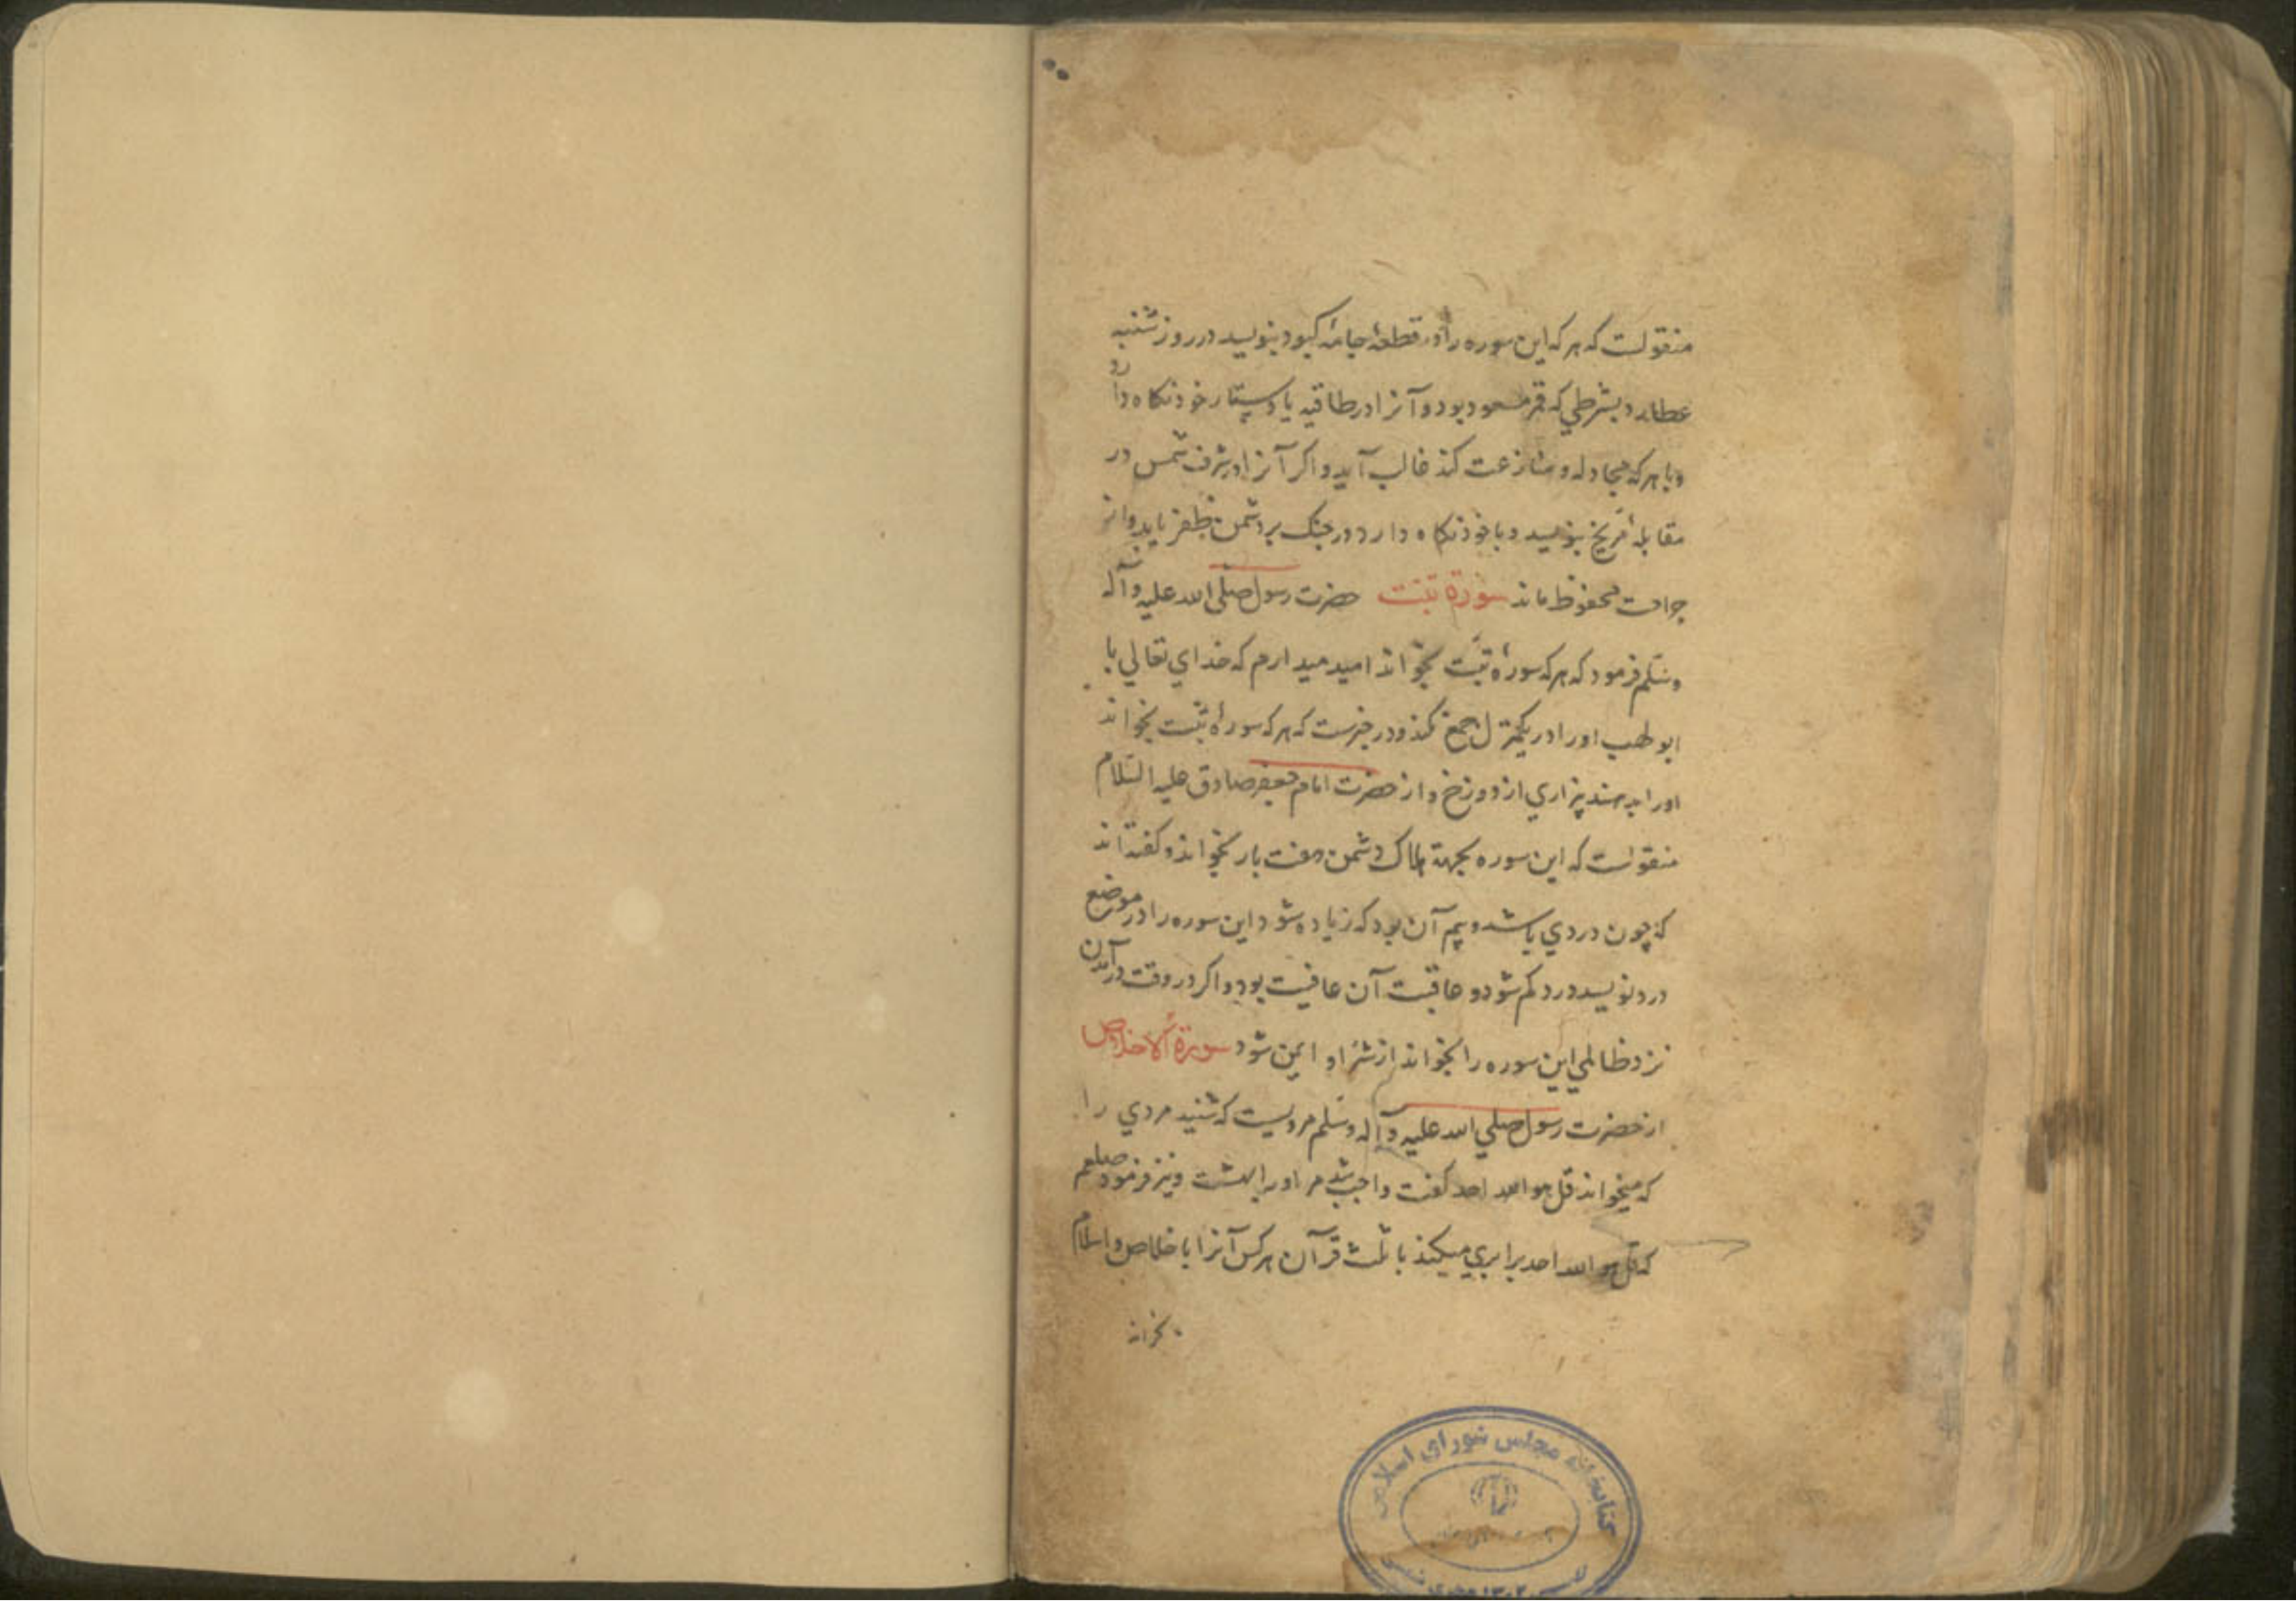 منقولست که هر که این سوره را در قطعهٔ جامهٔ کبود بنویسد در روز شنبه
عطارد بشرطی که قمر مسعود بود و آنرا در طاقیه یا دستار خود نکاه دارد
و با هر که مجادله و منازعت کند غالب آید و اکر آنرا در شرف شمس در
مقابلهٔ مریخ بنویسد و با خود نکاه دارد در جنک بر دشمن ظفر یابد و از
جراحت محفوظ ماند سورة تبت حضرت رسول صلی الله علیه وآله
وسلم فرمود که هر که سورهٔ تبت بخواند امید میدارم که خدای تعالی با
ابو لهب او را در یکمنزل جمع نکند و در خبرست که هر که سورهٔ تبت بخواند
او را بدهند بیزاری از دوزخ و از حضرت امام جعفر صادق علیه السلام
منقولست که این سوره بجهة هلاک دشمن هفت بار بخواند و کفته‌اند
که چون دردی باشد و بیم آن بود که زیاده شود این سوره را در موضع
درد نویسد درد کم شود و عاقبت آن عافیت بود و اکر در وقت درآمدن
نزد ظالمی این سوره را بخواند از شر او ایمن شود سورة الاخلاص
از حضرت رسول صلی الله علیه وآله وسلم مرویست که شنید مردی را
که میخواند قل هو الله احد کفت واجب شد مر او را بهشت و نیز فرمود صلعم
که قل هو الله احد برابری میکند با ثلث قرآن هر کس آنرا باخلاص و اسلام
بخواند
کتابخانه مجلس شورای اسلامی